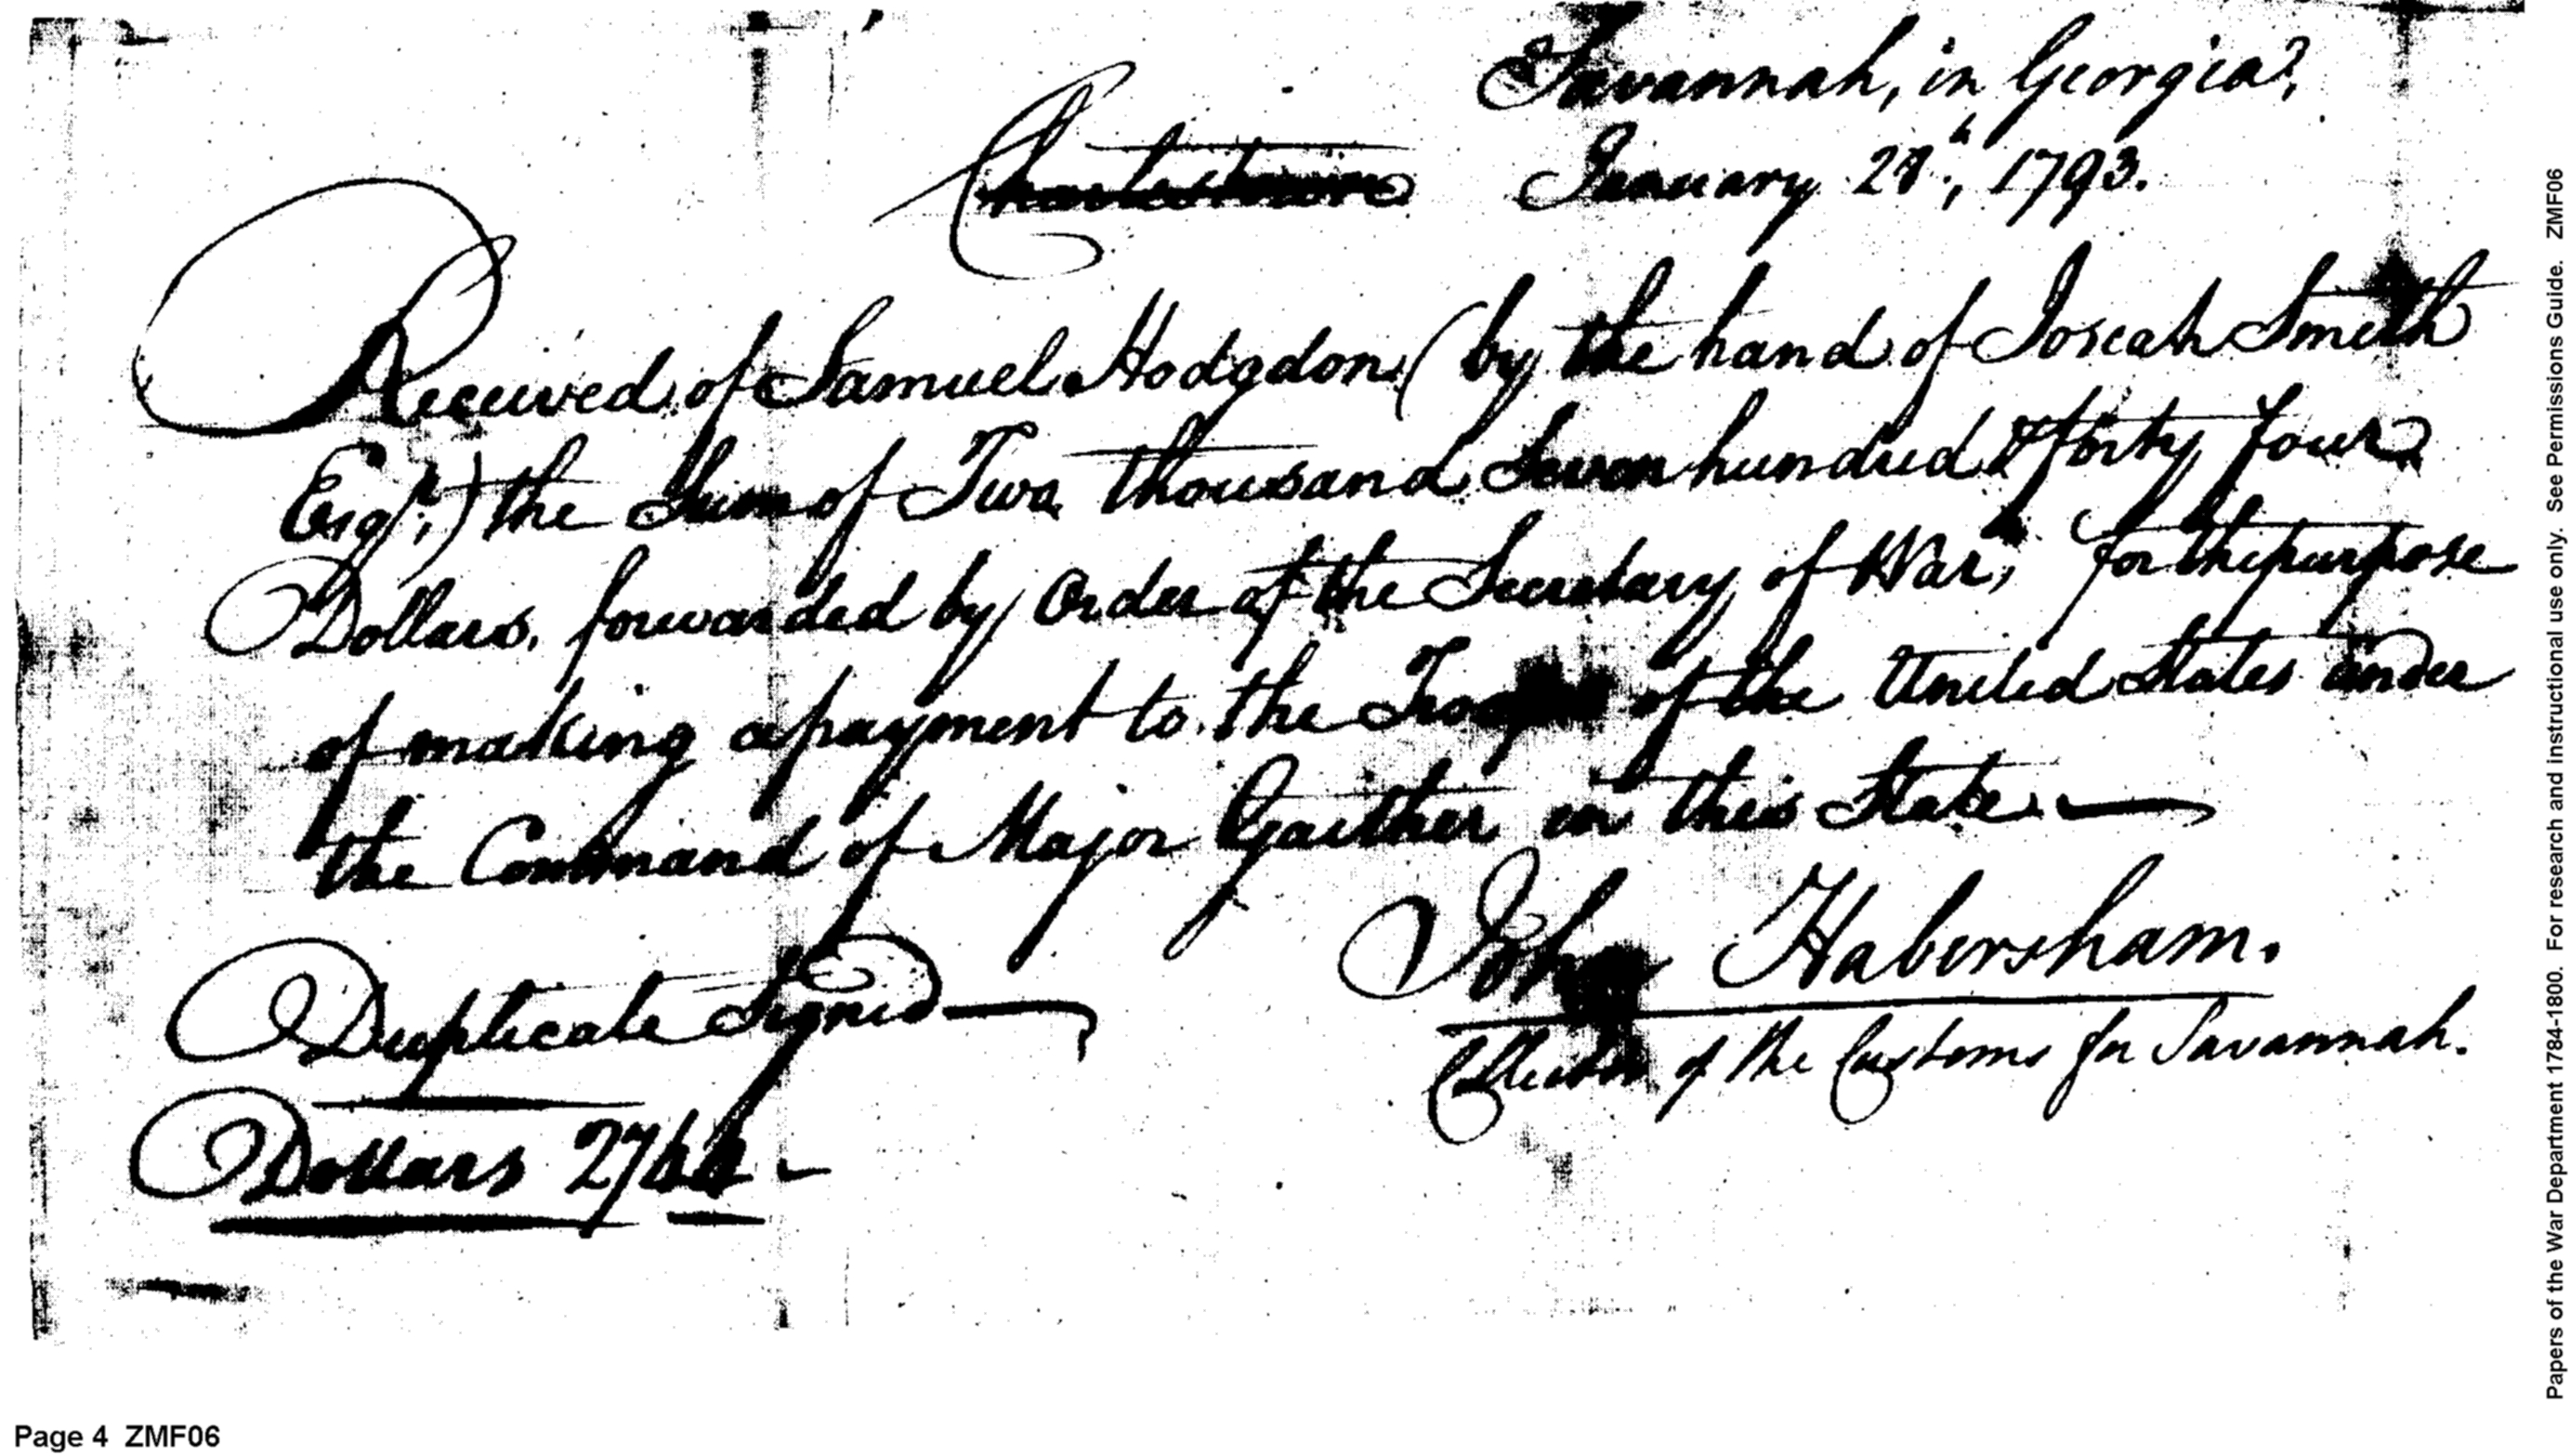 Savannah, in Georgia,
Charlestown January 28.h, 1793.
Received of Samuel Hodgdon (by the hand of Josiah Smith
Esqr.) the Sum of Two thousand Seven hundred & forty four
Dollars, forwarded by Order of the Secretary of War, for the purpose
of making a payment to the Troops of the United States under
the Command of Major Gaither in this State.
John Habersham.
Duplicate Signed
Collector of the Customs for Savannah.
Dollars 2744
Page 4 ZMF06
Papers of the War Department 1784-1800. For research and instructional use only. See Permissions Guide. ZMF06